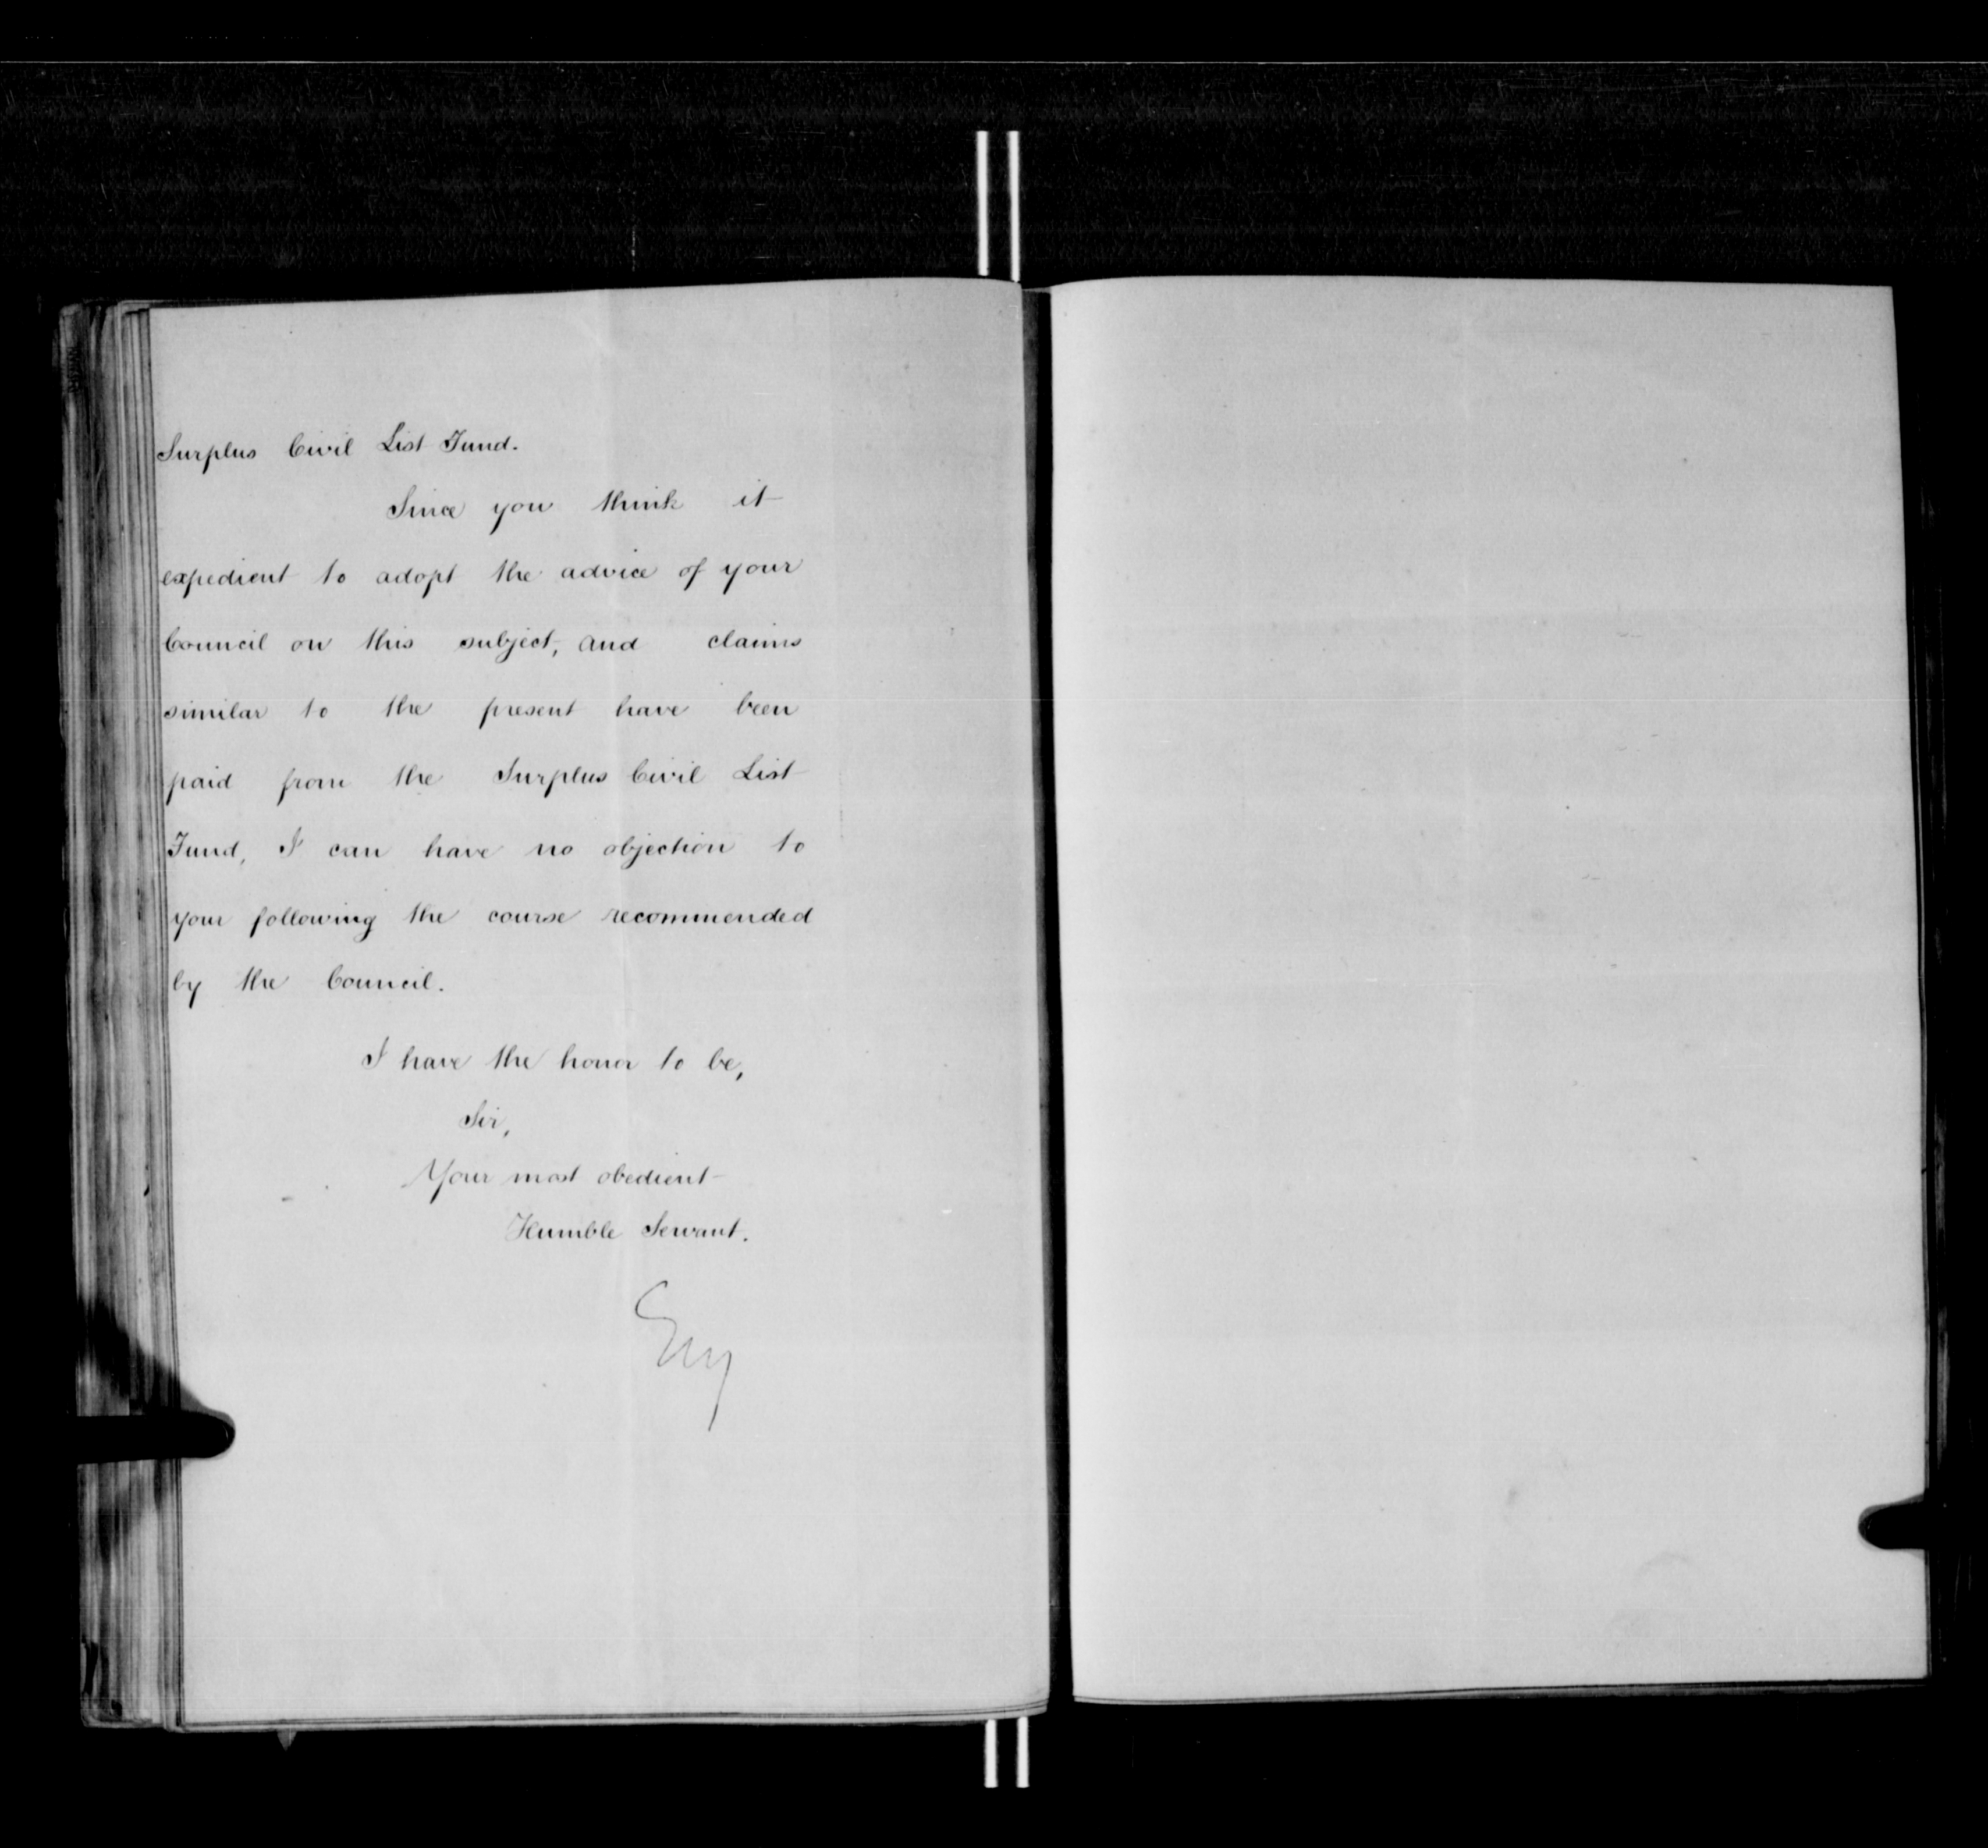 Surplus Civil List Fund.
Since you think it
expedient to adopt the advice of your
Council on this subject, and claims
similar to the present have been
paid from the Surplus Civil List
Fund, I can have no objection to
your following the course recommended
by the Council.
I have the honor to be,
Sir,
Your most obedient
Humble Servant.